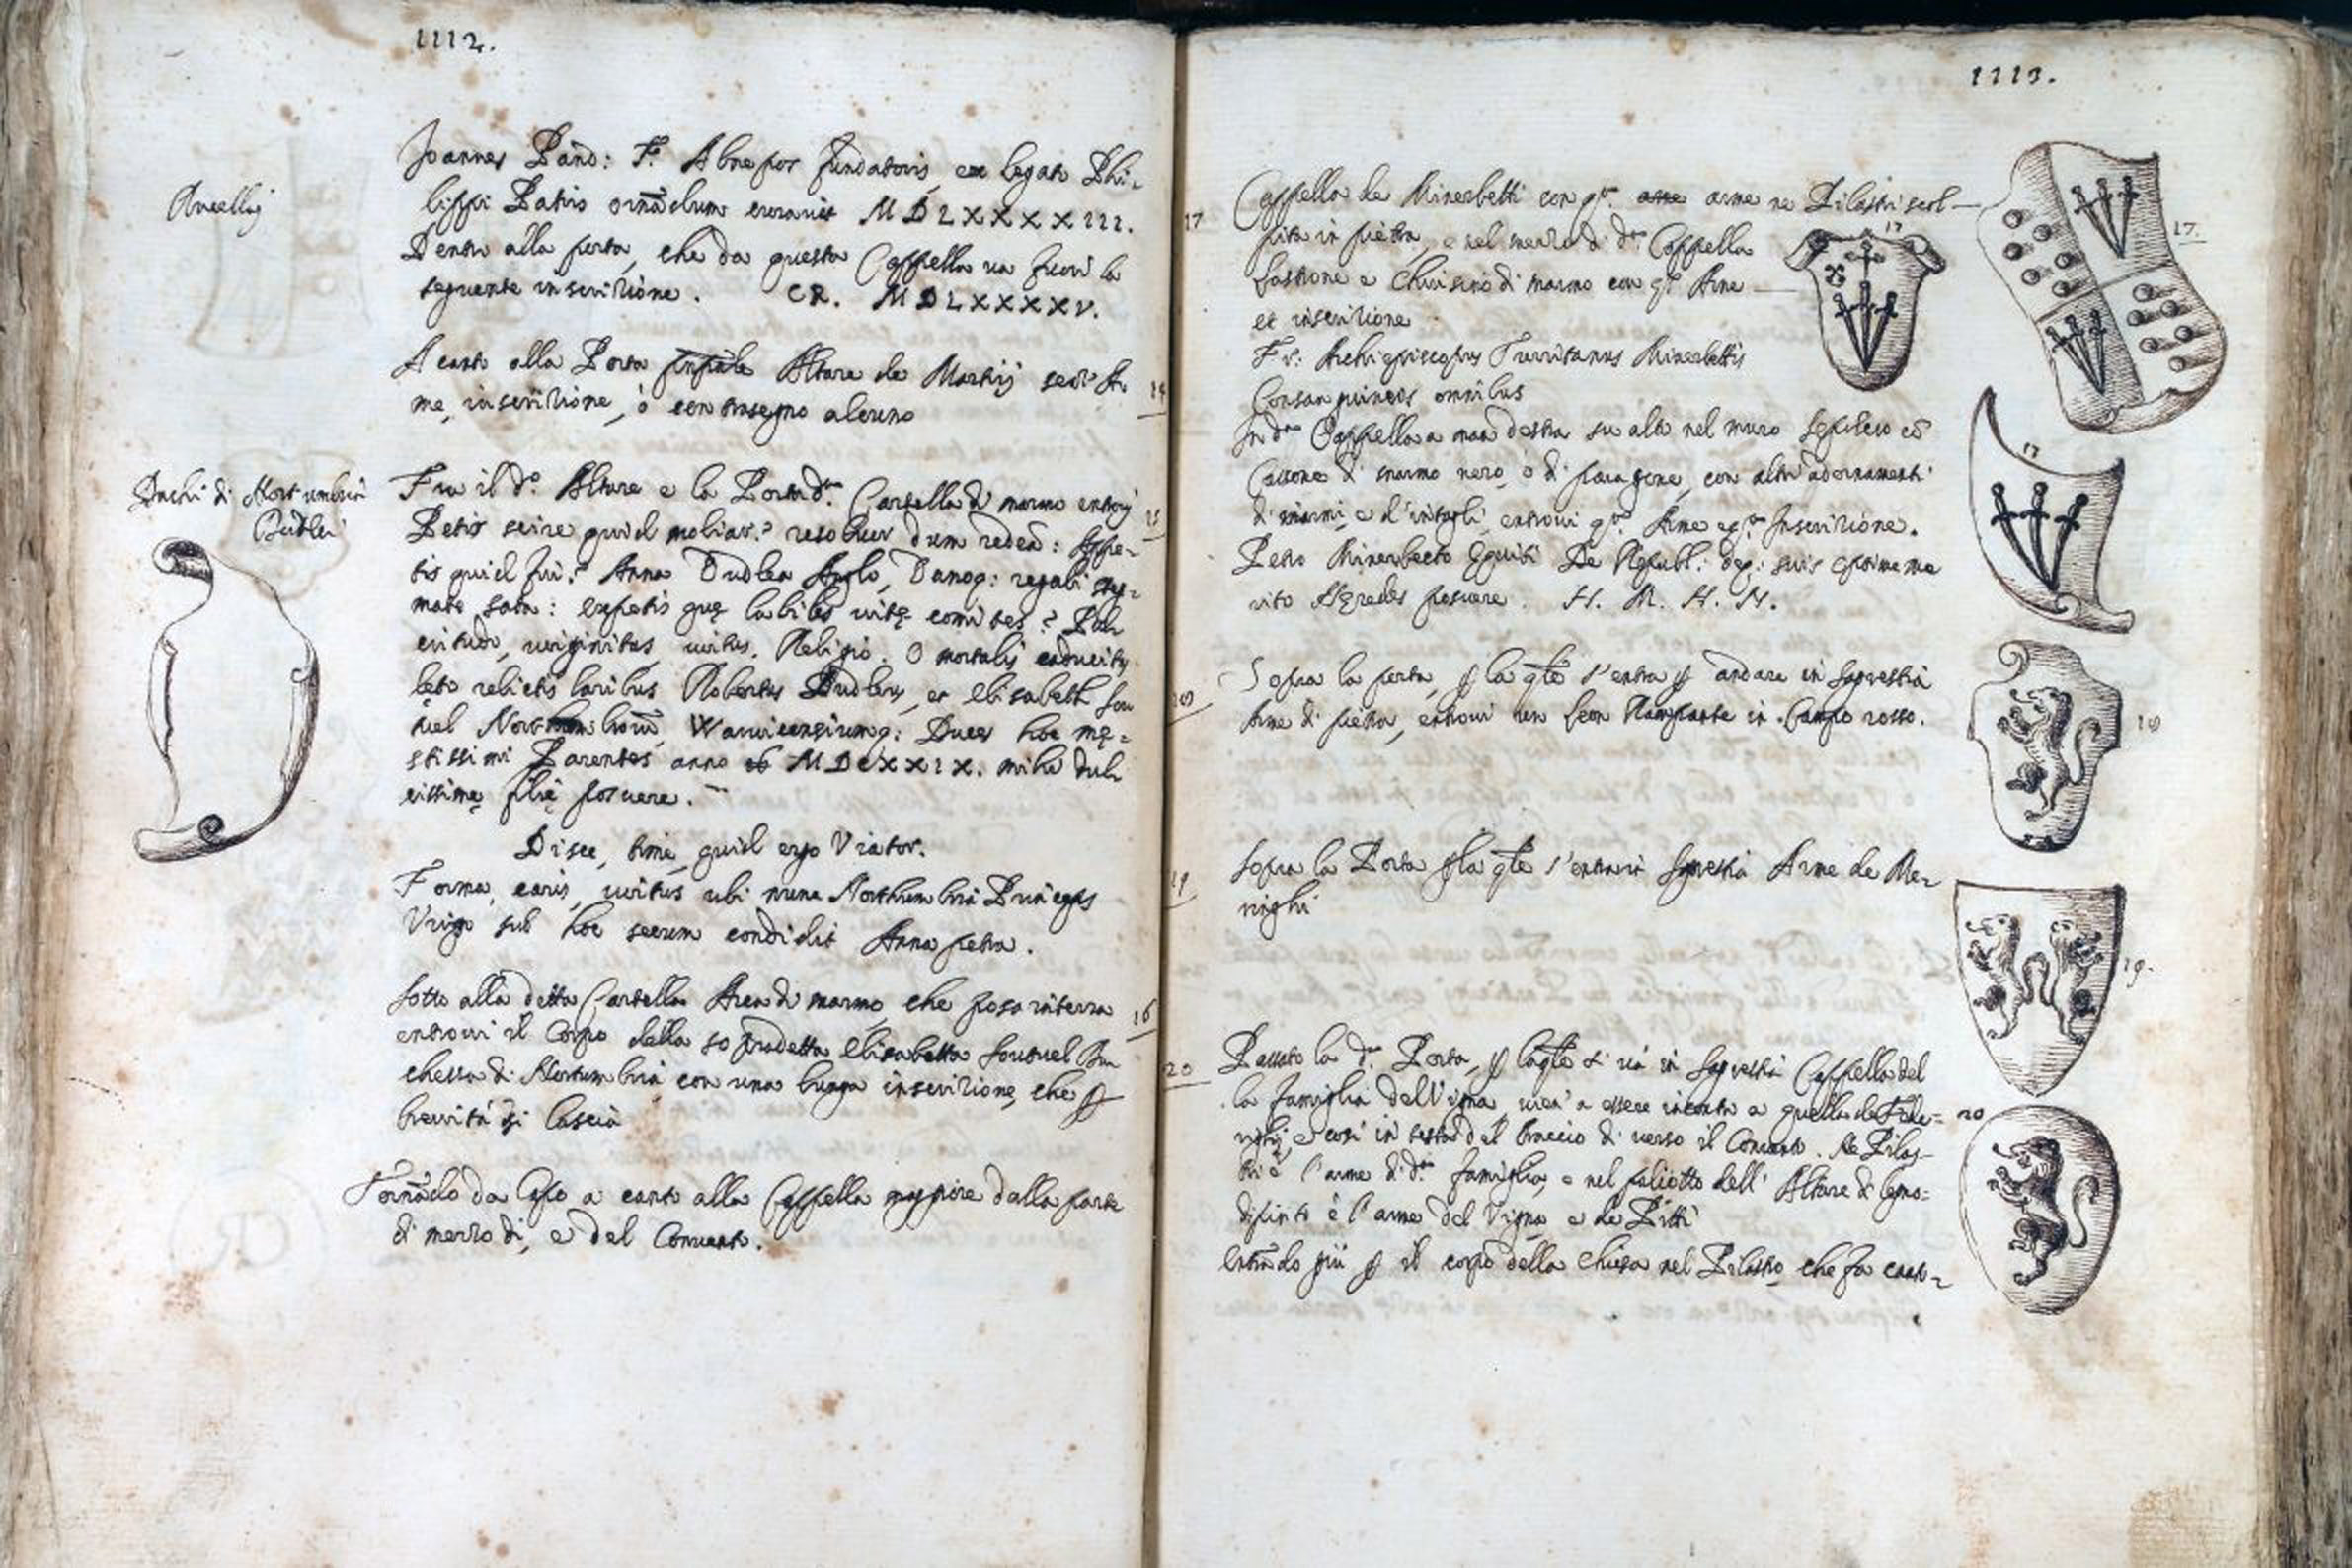 1112.
Rucellaj
Joannes Pand: F. Abnepos fundatoris, ex legato Phi-
lippi Patris ornãdum curavit MDLXXXXIII.
Dentro alla porta, che da questa Cappella va fuori la
seguente inscrizione. CR. MDLXXXXV.
A canto alla Porta Altare de Martij senz' Ar
me, inscrizione, ò contrasegno alcuno
14
Duchi di Nortumbria
Dudlei
Fra il do. Altare e la Porta da. Cartella di marmo entrovi
15
Petis scire quid moliar? resolvor dum redeã: Appe-
tis quid fui? Anna Dudlea Anglo, Danoq: regali stem-
mate sata: expetis quę labilis vitę comites? Pul
critudo, virginitas, virtus, Religio. O mortalis caducitas
lęto relictis laribus Robertus Dudleus, et Elisabeth Sou
tuel Northumbrorũ, Warvicensiumq: Duces hoc mę=
stissimi Parentes anno MDCXXIX. mihi dul
cissimę filię posuere.
Disce, time, quid ergo Viator.
Forma, caris, virtus ubi nunc Northumbria Princeps
Virgo sub hoc secum condidit Anna petra.
Sotto alla detta Cartella Arca di marmo, che posa in terra
16
entrovi il Corpo della sopradetta Elisabetta Soutuel Du
chessa di Nortumbria con una lunga inscrizione, che p
brevità si lascia
Tornãdo da Capo a canto alla Cappella maggiore dalla parte
di mezzo di, e del Convento.
1113.
17 Cappella de Minerbetti con qte. arme ne Pilastri scol-
pita in pietra, e nel mezzo di da. Cappella
17
17.
lastrone e Chiusino di marmo con qta. Arme
et inscrizione
Fr: Archiepiscopus Turritanus Minerbettis
Consanguineis omnibus
In da. Cappella a man destra su alto nel muro Sepolcro cõ
17
Cassone di marmo nero, ò di paragone, con altri adornamenti
di marmi, e d'intagli, entrovi qta. Arme e qta. Inscrizione.
Petro Minerbecto Equiti De Republ: deq: suis optime me
rito Hęredes posuere. H. M. H. N.
18 Sopra la porta, p la qle s'entra p andare in Sagrestia
Arme di pietra, entrovi un Leon Rampante in Campo rosso.
18
19 Sopra la Porta p la qle s'entra in Sagrestia Arme de Me-
righi
19.
20 Passato la da. Porta, p la qle si và in Sagrestia Cappella del
la famiglia del Vigna, vien' a essere incontro a quella de Fede-
20
righi, e così in testa del braccio di verso il Convento. Ne Pilas-
tri è l'arme di da. famiglia, e nel paliotto dell' Altare di legno
dipinto è l'arme del Vigna e de Pitti
Entrãdo più p il corpo della Chiesa nel Pilastro, che fa canto